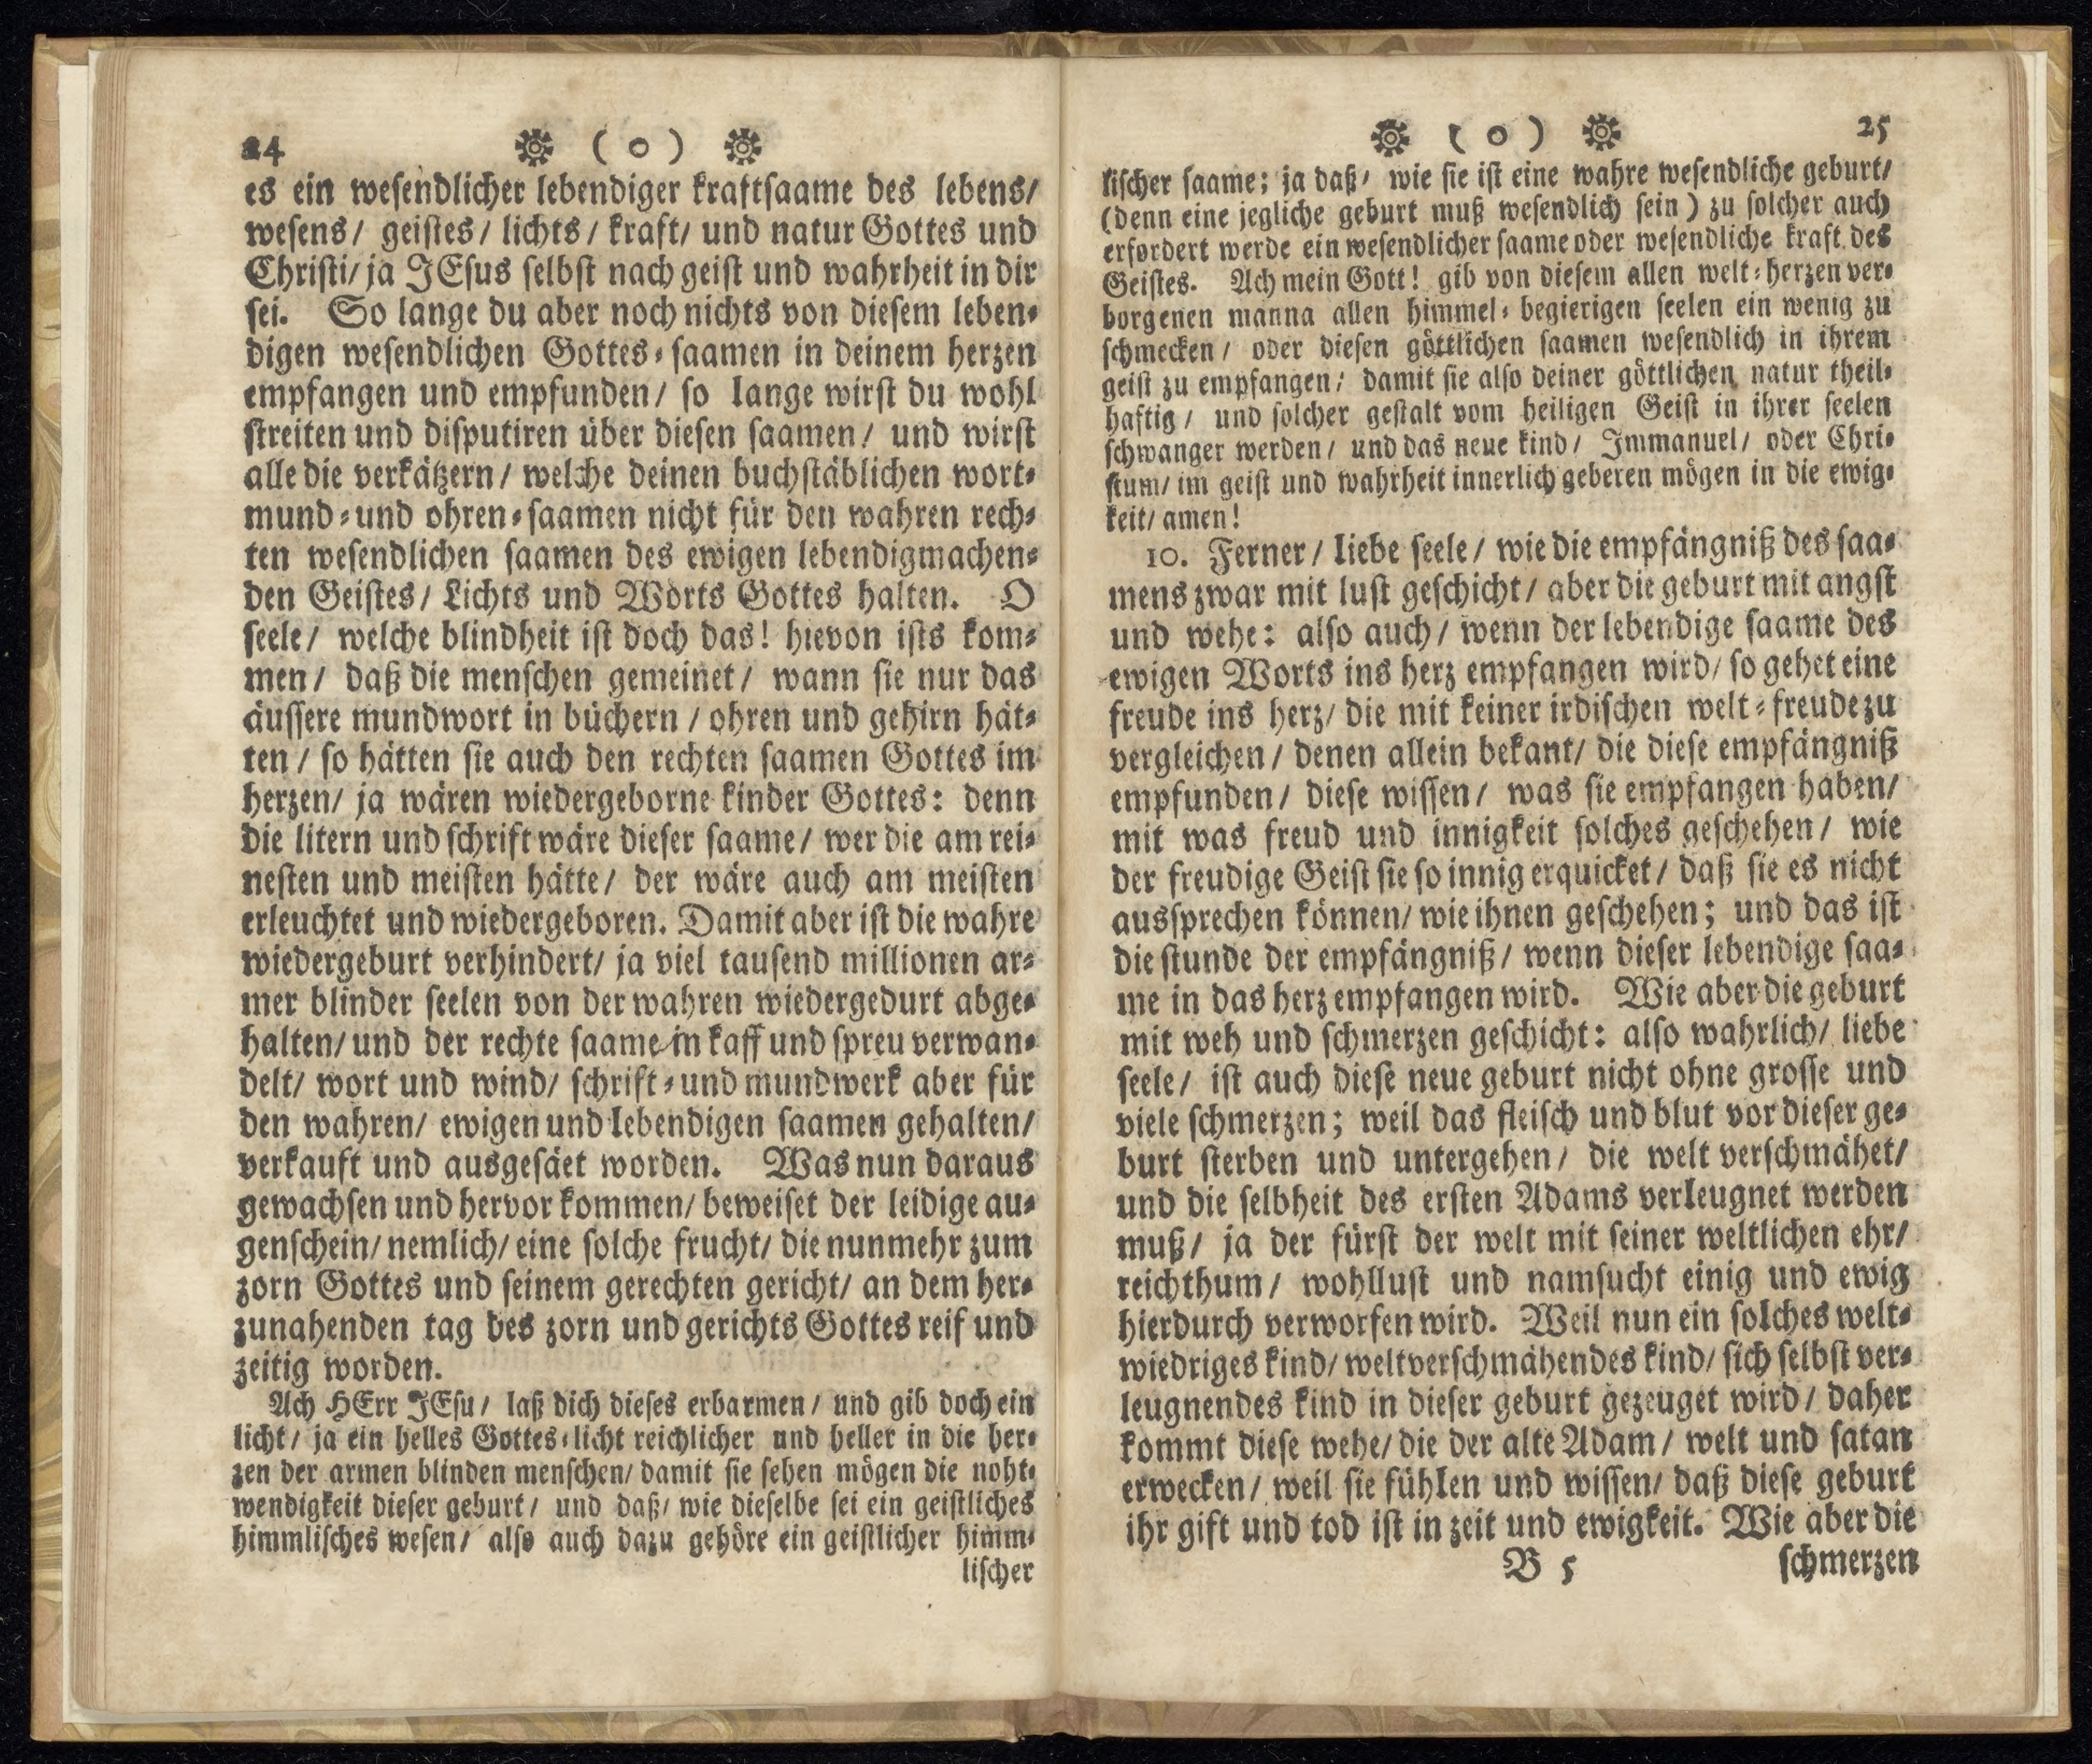 24 ( o )
es ein wesendlicher lebendiger kraftsaame des lebens/
wesens/ geistes/ lichts/ kraft/ und natur Gottes und
Christi/ ja JEsus selbst nach geist und wahrheit in dir
sei. So lange du aber noch nichts von diesem leben-
digen wesendlichen Gottes-saamen in deinem herzen
empfangen und empfunden/ so lange wirst du wohl
streiten und disputiren über diesen saamen/ und wirst
alle die verkätzern/ welche deinen buchstäblichen wort-
mund-und ohren-saamen nicht für den wahren rech-
ten wesendlichen saamen des ewigen lebendigmachen-
den Geistes/ Lichts und Worts Gottes halten. O
seele/ welche blindheit ist doch das! hievon ists kom-
men/ daß die menschen gemeinet/ wann sie nur das
äussere mundwort in büchern/ ohren und gehirn hät-
ten/ so hätten sie auch den rechten saamen Gottes im
herzen/ ja wären wiedergeborne kinder Gottes: denn
die litern und schrift wäre dieser saame/ wer die am rei-
nesten und meisten hätte/ der wäre auch am meisten
erleuchtet und wiedergeboren. Damit aber ist die wahre
wiedergeburt verhindert/ ja viel tausend millionen ar-
mer blinder seelen von der wahren wiedergedurt abge-
halten/ und der rechte saame in kaff und spreu verwan-
delt/ wort und wind/ schrift-und mundwerk aber für
den wahren/ ewigen und lebendigen saamen gehalten/
verkauft und ausgesäet worden. Was nun daraus
gewachsen und hervor kommen/ beweiset der leidige au-
genschein/ nemlich/ eine solche frucht/ die nunmehr zum
zorn Gottes und seinem gerechten gericht/ an dem her-
zunahenden tag des zorn und gerichts Gottes reif und
zeitig worden.
Ach HErr JEsu/ laß dich dieses erbarmen/ und gib doch ein
licht/ ja ein helles Gottes-licht reichlicher und heller in die her-
zen der armen blinden menschen/ damit sie sehen mögen die noht-
wendigkeit dieser geburt/ und daß/ wie dieselbe sei ein geistliches
himmlisches wesen/ also auch dazu gehöre ein geistlicher himm-
lischer
( o ) 25
lischer saame; ja daß/ wie sie ist eine wahre wesendliche geburt/
(denn eine jegliche geburt muß wesendlich sein) zu solcher auch
erfordert werde ein wesendlicher saame oder wesendliche kraft des
Geistes. Ach mein Gott! gib von diesem allen welt-herzen ver-
borgenen manna allen himmel-begierigen seelen ein wenig zu
schmecken/ oder diesen göttlichen saamen wesendlich in ihrem
geist zu empfangen/ damit sie also deiner göttlichen natur theil-
haftig/ und solcher gestalt vom heiligen Geist in ihrer seelen
schwanger werden/ und das neue kind/ Immanuel/ oder Chri-
stum/ im geist und wahrheit innerlich geberen mögen in die ewig-
keit/ amen!
10. Ferner/ liebe seele/ wie die empfängniß des saa-
mens zwar mit lust geschicht/ aber die geburt mit angst
und wehe: also auch/ wenn der lebendige saame des
ewigen Worts ins herz empfangen wird/ so gehet eine
freude ins herz/ die mit keiner irdischen welt-freude zu
vergleichen/ denen allein bekant/ die diese empfängniß
empfunden/ diese wissen/ was sie empfangen haben/
mit was freud und innigkeit solches geschehen/ wie
der freudige Geist sie so innig erquicket/ daß sie es nicht
aussprechen können/ wie ihnen geschehen; und das ist
die stunde der empfängniß/ wenn dieser lebendige saa-
me in das herz empfangen wird. Wie aber die geburt
mit weh und schmerzen geschicht: also wahrlich/ liebe
seele/ ist auch diese neue geburt nicht ohne grosse und
viele schmerzen; weil das fleisch und blut vor dieser ge-
burt sterben und untergehen/ die welt verschmähet/
und die selbheit des ersten Adams verleugnet werden
muß/ ja der fürst der welt mit seiner weltlichen ehr/
reichthum/ wohllust und namsucht einig und ewig
hierdurch verworfen wird. Weil nun ein solches welt-
wiedriges kind/ weltverschmähendes kind/ sich selbst ver-
leugnendes kind in dieser geburt gezeuget wird/ daher
kommt diese wehe/ die der alte Adam/ welt und satan
erwecken/ weil sie fühlen und wissen/ daß diese geburt
ihr gift und tod ist in zeit und ewigkeit. Wie aber die
B 5 schmerzen